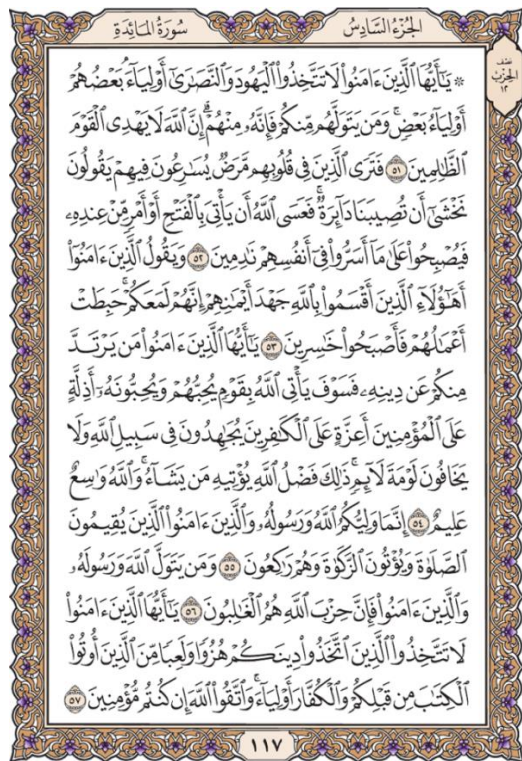 الجُزْءُ السَّادِسُ
سُورَةُ المَائِدَةِ
نصف
الحِزْب
١٢
۞ يَٰٓأَيُّهَا ٱلَّذِينَ ءَامَنُوا۟ لَا تَتَّخِذُوا۟ ٱلْيَهُودَ وَٱلنَّصَٰرَىٰٓ أَوْلِيَآءَۘ بَعْضُهُمْ
أَوْلِيَآءُ بَعْضٍۚ وَمَن يَتَوَلَّهُم مِّنكُمْ فَإِنَّهُۥ مِنْهُمْۗ إِنَّ ٱللَّهَ لَا يَهْدِى ٱلْقَوْمَ
ٱلظَّٰلِمِينَ ٥١ فَتَرَى ٱلَّذِينَ فِى قُلُوبِهِم مَّرَضٌ يُسَٰرِعُونَ فِيهِمْ يَقُولُونَ
نَخْشَىٰٓ أَن تُصِيبَنَا دَآئِرَةٌۚ فَعَسَى ٱللَّهُ أَن يَأْتِىَ بِٱلْفَتْحِ أَوْ أَمْرٍ مِّنْ عِندِهِۦ
فَيُصْبِحُوا۟ عَلَىٰ مَآ أَسَرُّوا۟ فِىٓ أَنفُسِهِمْ نَٰدِمِينَ ٥٢ وَيَقُولُ ٱلَّذِينَ ءَامَنُوٓا۟
أَهَٰٓؤُلَآءِ ٱلَّذِينَ أَقْسَمُوا۟ بِٱللَّهِ جَهْدَ أَيْمَٰنِهِمْ إِنَّهُمْ لَمَعَكُمْۚ حَبِطَتْ
أَعْمَٰلُهُمْ فَأَصْبَحُوا۟ خَٰسِرِينَ ٥٣ يَٰٓأَيُّهَا ٱلَّذِينَ ءَامَنُوا۟ مَن يَرْتَدَّ
مِنكُمْ عَن دِينِهِۦ فَسَوْفَ يَأْتِى ٱللَّهُ بِقَوْمٍ يُحِبُّهُمْ وَيُحِبُّونَهُۥٓ أَذِلَّةٍ
عَلَى ٱلْمُؤْمِنِينَ أَعِزَّةٍ عَلَى ٱلْكَٰفِرِينَ يُجَٰهِدُونَ فِى سَبِيلِ ٱللَّهِ وَلَا
يَخَافُونَ لَوْمَةَ لَآئِمٍۚ ذَٰلِكَ فَضْلُ ٱللَّهِ يُؤْتِيهِ مَن يَشَآءُۚ وَٱللَّهُ وَٰسِعٌ
عَلِيمٌ ٥٤ إِنَّمَا وَلِيُّكُمُ ٱللَّهُ وَرَسُولُهُۥ وَٱلَّذِينَ ءَامَنُوا۟ ٱلَّذِينَ يُقِيمُونَ
ٱلصَّلَوٰةَ وَيُؤْتُونَ ٱلزَّكَوٰةَ وَهُمْ رَٰكِعُونَ ٥٥ وَمَن يَتَوَلَّ ٱللَّهَ وَرَسُولَهُۥ
وَٱلَّذِينَ ءَامَنُوا۟ فَإِنَّ حِزْبَ ٱللَّهِ هُمُ ٱلْغَٰلِبُونَ ٥٦ يَٰٓأَيُّهَا ٱلَّذِينَ ءَامَنُوا۟
لَا تَتَّخِذُوا۟ ٱلَّذِينَ ٱتَّخَذُوا۟ دِينَكُمْ هُزُوًا وَلَعِبًا مِّنَ ٱلَّذِينَ أُوتُوا۟
ٱلْكِتَٰبَ مِن قَبْلِكُمْ وَٱلْكُفَّارَ أَوْلِيَآءَۚ وَٱتَّقُوا۟ ٱللَّهَ إِن كُنتُم مُّؤْمِنِينَ ٥٧
١١٧